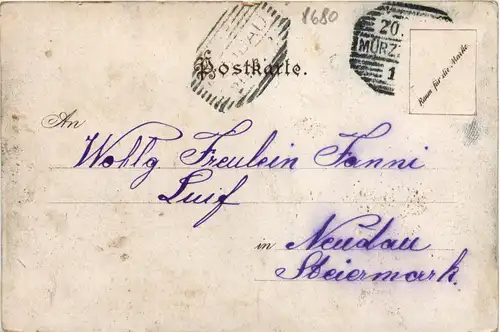 1680
20.
MÜRZ
1
Postkarte.
Raum für die Marke
An
Wohlg. Freulein Fanni
Luif
in Neudau
Steiermark.